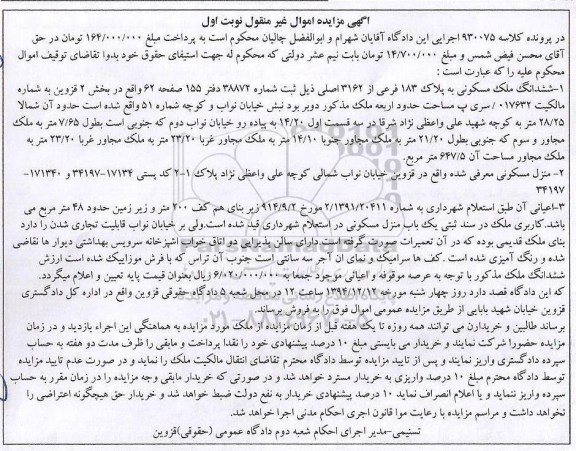 آگهی مزایده اموال غیر منقول نوبت اول
در پرونده کلاسه ۹۳۰۰۷۵ اجرایی این دادگاه آقایان شهرام و ابوالفضل چالیان محکوم است به پرداخت مبلغ ۱۶۴/۰۰۰/۰۰۰ تومان در حق
آقای محسن فیض شمس و مبلغ ۱۴/۷۰۰/۰۰۰ تومان بابت نیم عشر دولتی که محکوم له جهت استیفای حقوق خود بدوا تقاضای توقیف اموال
محکوم علیه را که عبارت است :
۱-ششدانگ ملک مسکونی به پلاک ۱۸۳ فرعی از ۳۱۶۲ اصلی ذیل ثبت شماره ۳۸۸۷۲ دفتر ۱۵۵ صفحه ۶۲ واقع در بخش ۲ قزوین به شماره
مالکیت ۰۱۷۶۳۲ / سری پ مساحت حدود اربعه ملک مذکور دوبر بود نبش خیابان نواب و کوچه شماره ۵۱ واقع شده است حدود آن شمالا
۲۸/۲۵ متر به کوچه شهید علی واعظی نژاد شرقا در سه قسمت اول ۱۴/۲۰ به پیاده رو خیابان نواب دوم که جنوبی است بطول ۷/۶۵ متر به ملک
مجاور و سوم که جنوبی بطول ۲۱/۲۰ متر به ملک مجاور جنوبا ۱۴/۱۰ متر به ملک مجاور غربا ۲۳/۲۰ متر به ملک مجاور غربا ۲۳/۲۰ متر به
ملک مجاور مساحت آن ۶۴۷/۵ متر مربع.
۲- منزل مسکونی معرفی شده واقع در قزوین خیابان نواب شمالی کوچه علی واعظی نژاد پلاک ۱-۲ کد پستی ۱۷۱۳۴-۳۴۱۹۷ و ۱۷۱۳۴۰-
۳۴۱۹۷
۳-اعیانی آن طبق استعلام شهرداری به شماره ۲/۱۳۹۱/۲۰۴۱۱ مورخ ۹۱۴/۹/۲ زیر بنای هم کف ۲۰۰ متر و زیر زمین حدود ۴۸ متر مربع می
باشد.کاربری ملک در سند ثبتی یک باب منزل مسکونی در استعلام شهرداری قید شده است.ولی بر خیابان نواب قابلیت تجاری شدن را دارد
بنای ملک قدیمی بوده که در آن تعمیرات صورت گرفته است دارای سالن پذیرای دو اتاق خواب اشپزخانه سرویس بهداشتی دیوار ها نقاشی
شده و رنگ آمیزی شده است .کف ها سرامیک و نمای ان آجر سه سانتی است جنوب آن تراس که با فرش موزاییک شده است ارزش
ششدانگ ملک مذکور با توجه به عرصه موقوفه و اعیانی موجود جمعا به ۶/۰۲۰/۰۰۰/۰۰۰ ریال بعنوان قیمت پایه تعیین و اعلام میگردد.
که این دادگاه قصد دارد روز چهار شنبه مورخه ۱۳۹۴/۱۲/۱۲ ساعت ۱۲ در محل شعبه ۵ دادگاه حقوقی قزوین واقع در اداره کل دادگستری
قزوین خیابان شهید بابایی از طریق مزایده عمومی اموال فوق را به فروش برساند.
برساند طالبین و خریدارن می توانند همه روزه تا یک هفته قبل از زمان مزایده از ملک مورد مزایده به هماهنگی این اجراء بازدید و در زمان
مزایده حضورا شرکت نمایند و خریدار می بایستی مبلغ ۱۰ درصد پیشنهادی خود را نقدا پرداخت و مابقی را ظرف مدت دو هفته به حساب
سپرده دادگستری واریز نمایند و پس از تایید مزایده توسط دادگاه محترم تقاضای انتقال مالکیت ملک را نماید و در صورت عدم تایید مزایده
توسط دادگاه محترم مبلغ ۱۰ درصد واریزی به خریدار مسترد خواهد شد و در صورتی که خریدار مابقی وجه مزایده را در زمان مقرر به حساب
سپرده واریز ننماید و یا اعلام انصراف نماید ۱۰ درصد پیشنهادی خریدار به نفع دولت ضبط خواهد شد و خریدار حق هیچگونه اعتراضی را
نخواهد داشت و مراسم مزایده با رعایت موا قانون اجری احکام مدنی اجرا خواهد شد.
تسنیمی-مدیر اجرای احکام شعبه دوم دادگاه عمومی (حقوقی)قزوین